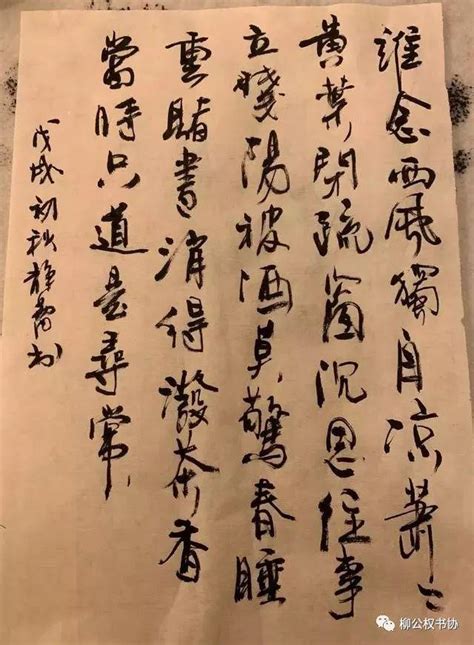 誰念西風獨自凉蕭〻
黄葉閉疏窗沉思往事
立殘陽被酒莫驚春睡
重賭書消得潑茶香
當時只道是尋常
戊戌初秋靜书
柳公权书协